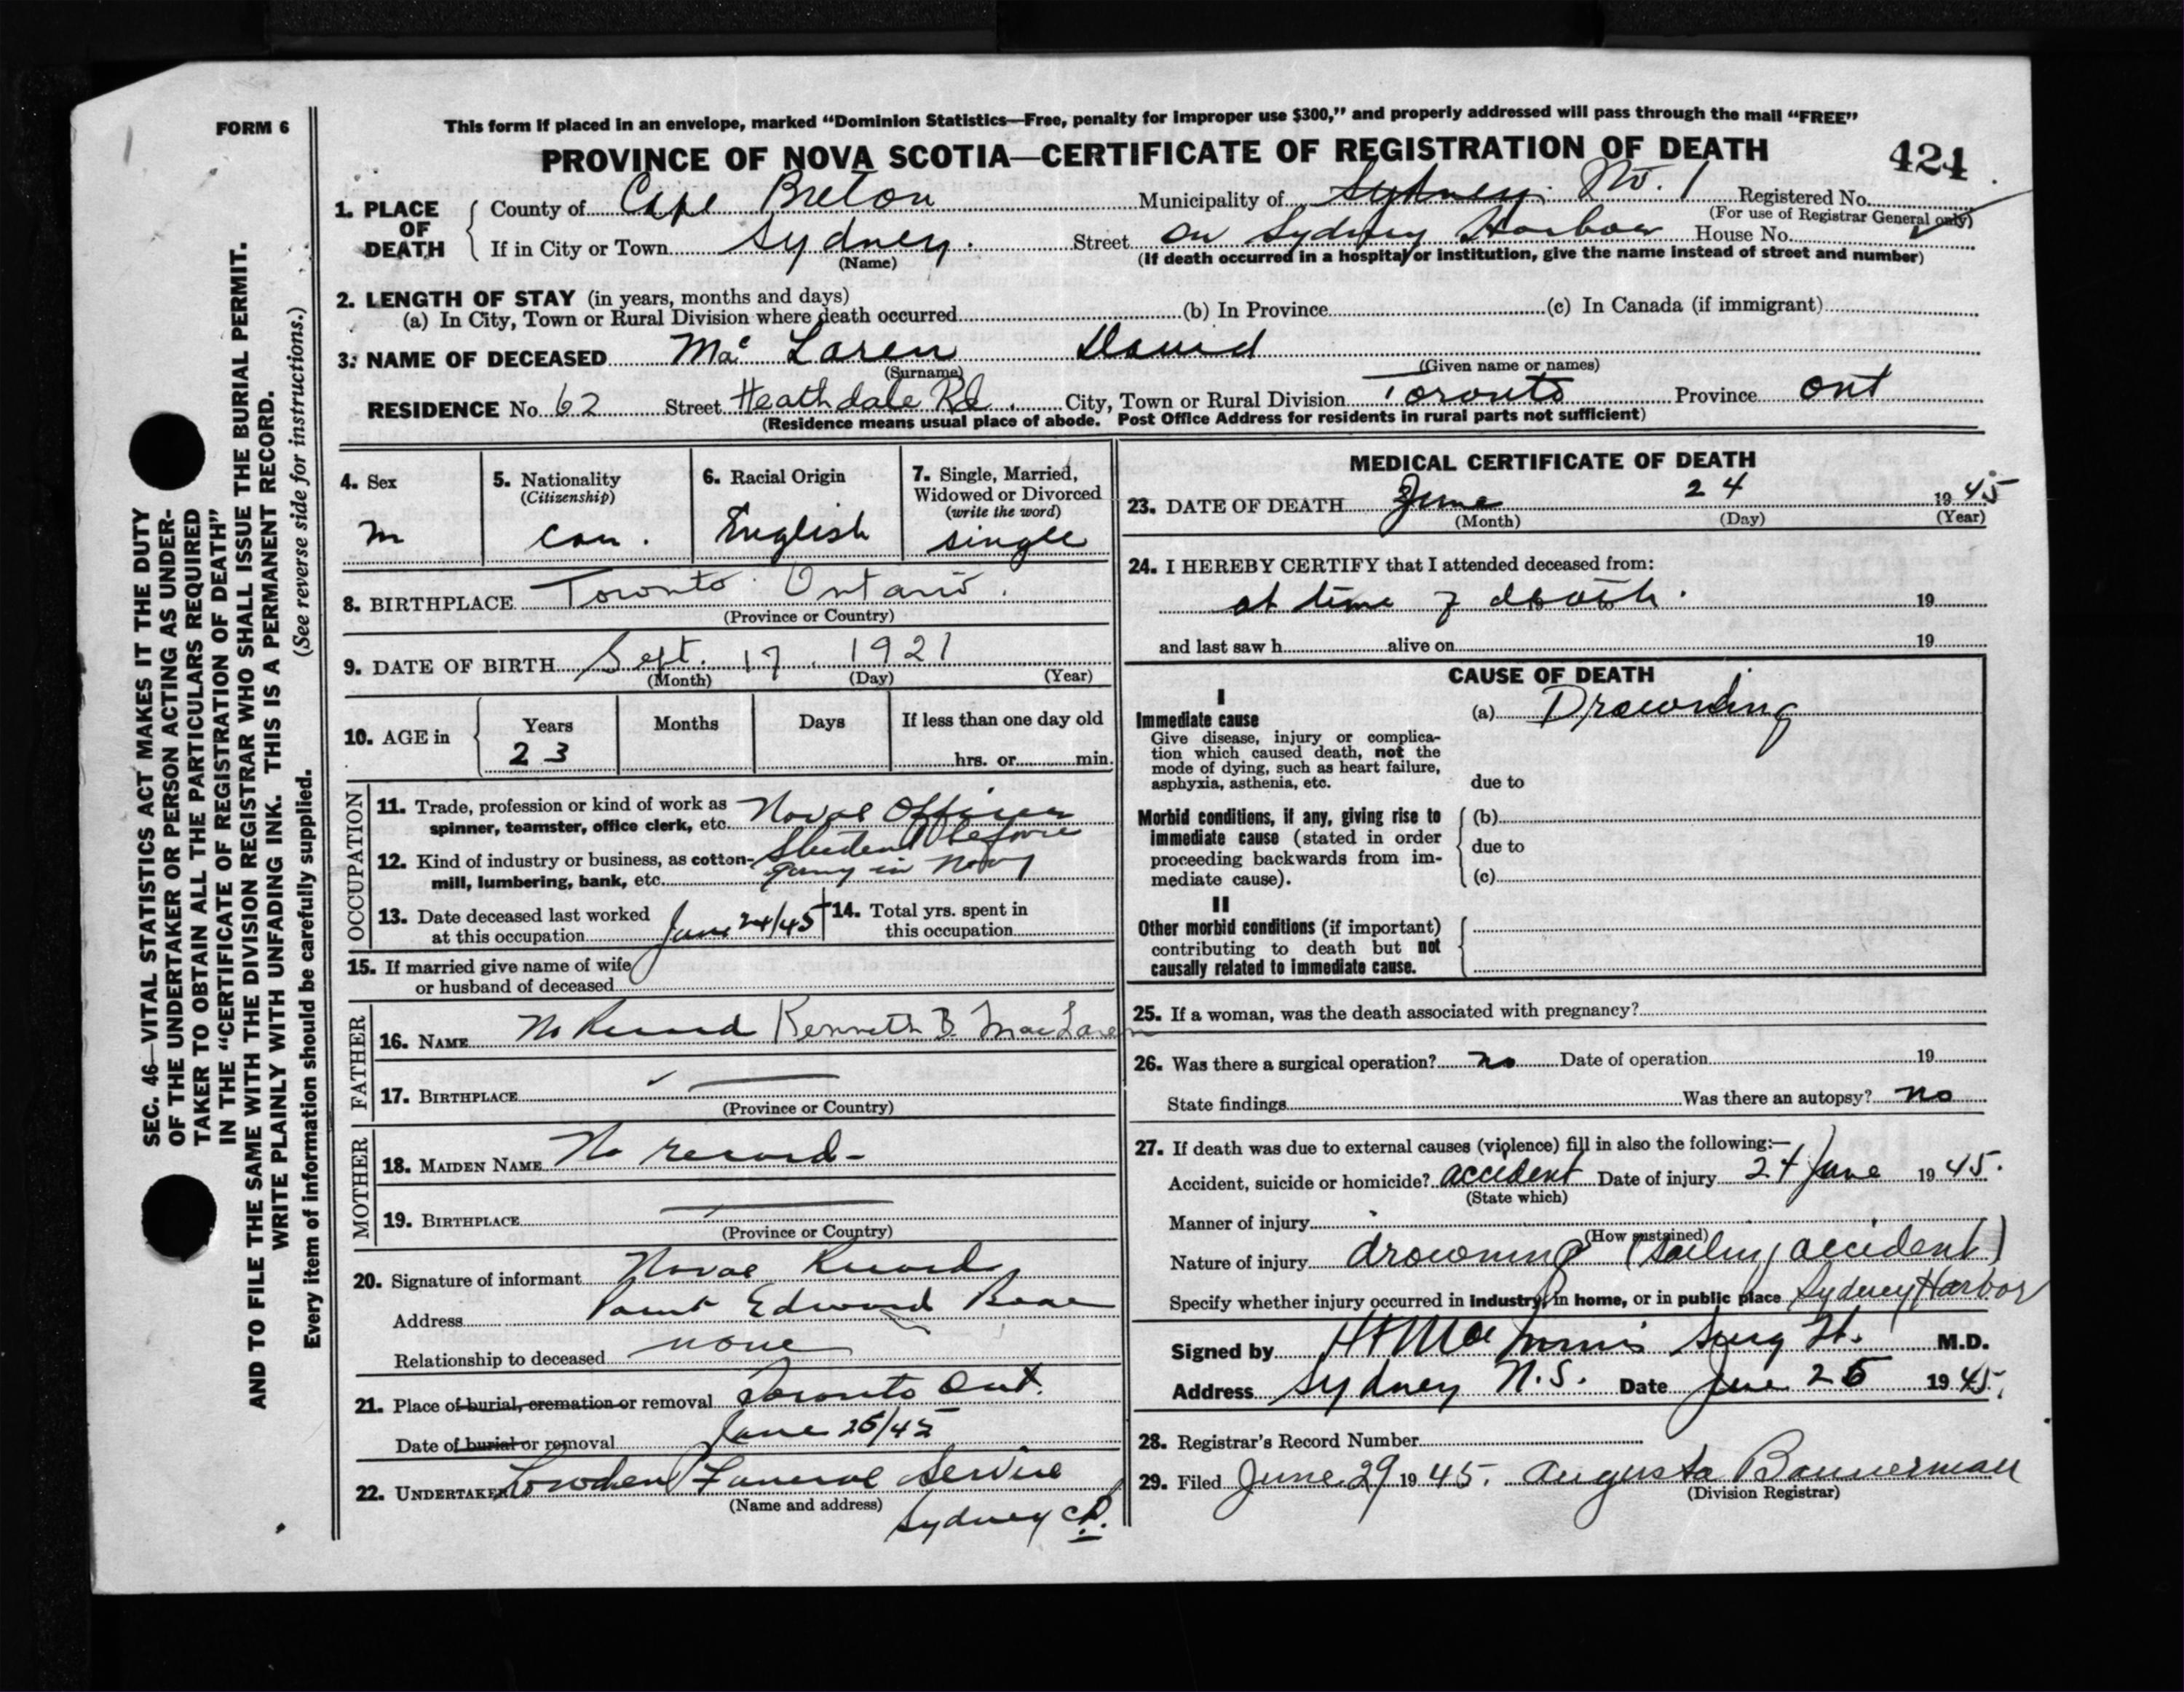 FORM 6
This form if placed in an envelope, marked “Dominion Statistics—Free, penalty for improper use $300,” and properly addressed will pass through the mail “FREE”
PROVINCE OF NOVA SCOTIA—CERTIFICATE OF REGISTRATION OF DEATH
424
1. PLACE OF DEATH
County of Cape Breton Municipality of Sydney. No. 1 Registered No.
(For use of Registrar General only)
If in City or Town Sydney. Street on Sydney Harbour House No.
(Name) (If death occurred in a hospital or institution, give the name instead of street and number)
2. LENGTH OF STAY (in years, months and days)
(a) In City, Town or Rural Division where death occurred (b) In Province (c) In Canada (if immigrant)
3. NAME OF DECEASED Mac Laren David
(Surname) (Given name or names)
RESIDENCE No. 62 Street Heathdale Rd. City, Town or Rural Division Toronto Province Ont
(Residence means usual place of abode. Post Office Address for residents in rural parts not sufficient)
4. Sex
m
5. Nationality
(Citizenship)
Can.
6. Racial Origin
English
7. Single, Married,
Widowed or Divorced
(write the word)
single
8. BIRTHPLACE Toronto Ontario.
(Province or Country)
9. DATE OF BIRTH Sept. 17, 1921
(Month) (Day) (Year)
10. AGE in
Years Months Days If less than one day old
23 hrs. or min.
OCCUPATION
11. Trade, profession or kind of work as
spinner, teamster, office clerk, etc. Naval Officer
12. Kind of industry or business, as cotton-
mill, lumbering, bank, etc. Student before
going in Navy
13. Date deceased last worked
at this occupation June 24/45
14. Total yrs. spent in
this occupation
15. If married give name of wife
or husband of deceased
FATHER
16. NAME No Record Kenneth B. MacLaren
17. BIRTHPLACE
(Province or Country)
MOTHER
18. MAIDEN NAME No record-
19. BIRTHPLACE
(Province or Country)
20. Signature of informant Naval Records
Address Point Edward Base
Relationship to deceased none
21. Place of burial, cremation or removal Toronto Ont.
Date of burial or removal June 26/45
22. UNDERTAKER Lowden Funeral Service
(Name and address)
Sydney CB.
MEDICAL CERTIFICATE OF DEATH
23. DATE OF DEATH June 24 1945
(Month) (Day) (Year)
24. I HEREBY CERTIFY that I attended deceased from:
at time of death. to 19
and last saw h alive on 19
CAUSE OF DEATH
I
Immediate cause
Give disease, injury or complica-
tion which caused death, not the
mode of dying, such as heart failure,
asphyxia, asthenia, etc.
(a) Drownding
due to
Morbid conditions, if any, giving rise to
immediate cause (stated in order
proceeding backwards from im-
mediate cause).
(b)
due to
(c)
II
Other morbid conditions (if important)
contributing to death but not
causally related to immediate cause.
25. If a woman, was the death associated with pregnancy?
26. Was there a surgical operation? no Date of operation 19
State findings Was there an autopsy? no
27. If death was due to external causes (violence) fill in also the following:—
Accident, suicide or homicide? accident Date of injury 24 June 1945.
(State which)
Manner of injury
(How sustained)
Nature of injury drowning (sailing accident)
Specify whether injury occurred in industry, in home, or in public place Sydney Harbor
Signed by Surg Lt. M.D.
Address Sydney N.S. Date June 26 1945.
28. Registrar's Record Number
29. Filed June 29 1945. Augusta Bannerman
(Division Registrar)
SEC. 46—VITAL STATISTICS ACT MAKES IT THE DUTY
OF THE UNDERTAKER OR PERSON ACTING AS UNDER-
TAKER TO OBTAIN ALL THE PARTICULARS REQUIRED
IN THE “CERTIFICATE OF REGISTRATION OF DEATH”
AND TO FILE THE SAME WITH THE DIVISION REGISTRAR WHO SHALL ISSUE THE BURIAL PERMIT.
WRITE PLAINLY WITH UNFADING INK. THIS IS A PERMANENT RECORD.
Every item of information should be carefully supplied. (See reverse side for instructions.)